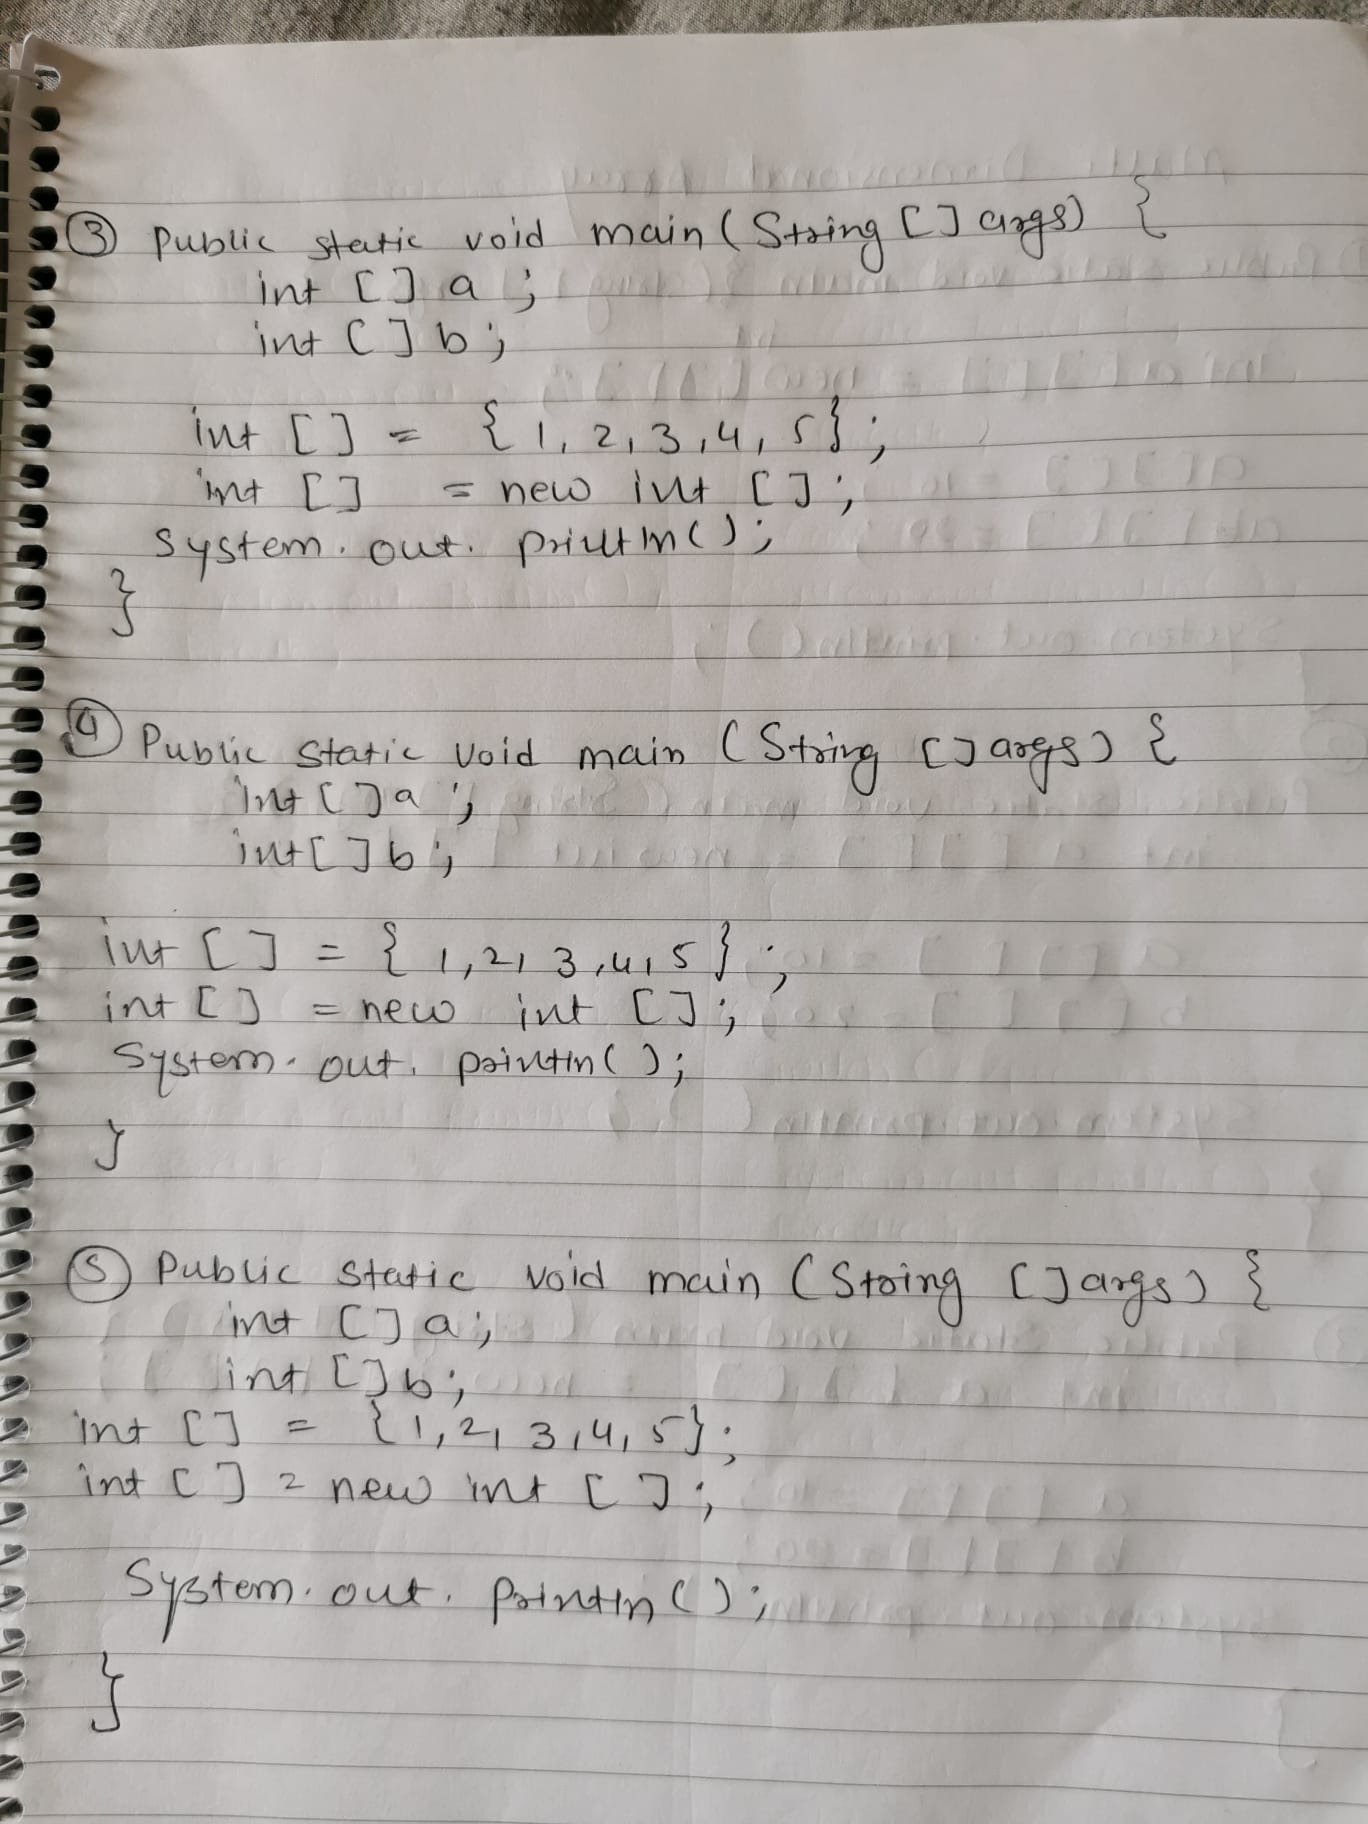 ③ Public static void main (String [] args) {
int [] a ;
int [] b ;
int [] = { 1, 2, 3, 4, 5 } ;
int [] = new int [] ;
System. out. println() ;
}
④ Public static void main (String [] args) {
int [] a ;
int [] b ;
int [] = { 1, 2, 3, 4, 5 } ;
int [] = new int [] ;
System. out. println() ;
}
⑤ Public static void main (String [] args) {
int [] a ;
int [] b ;
int [] = { 1, 2, 3, 4, 5 } ;
int [] = new int [] ;
System. out. println() ;
}